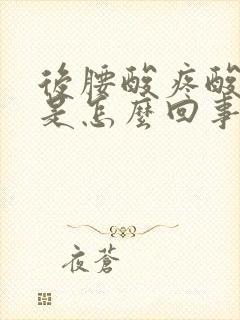 後腰酸疼酸
是怎麼回事
夜蒼